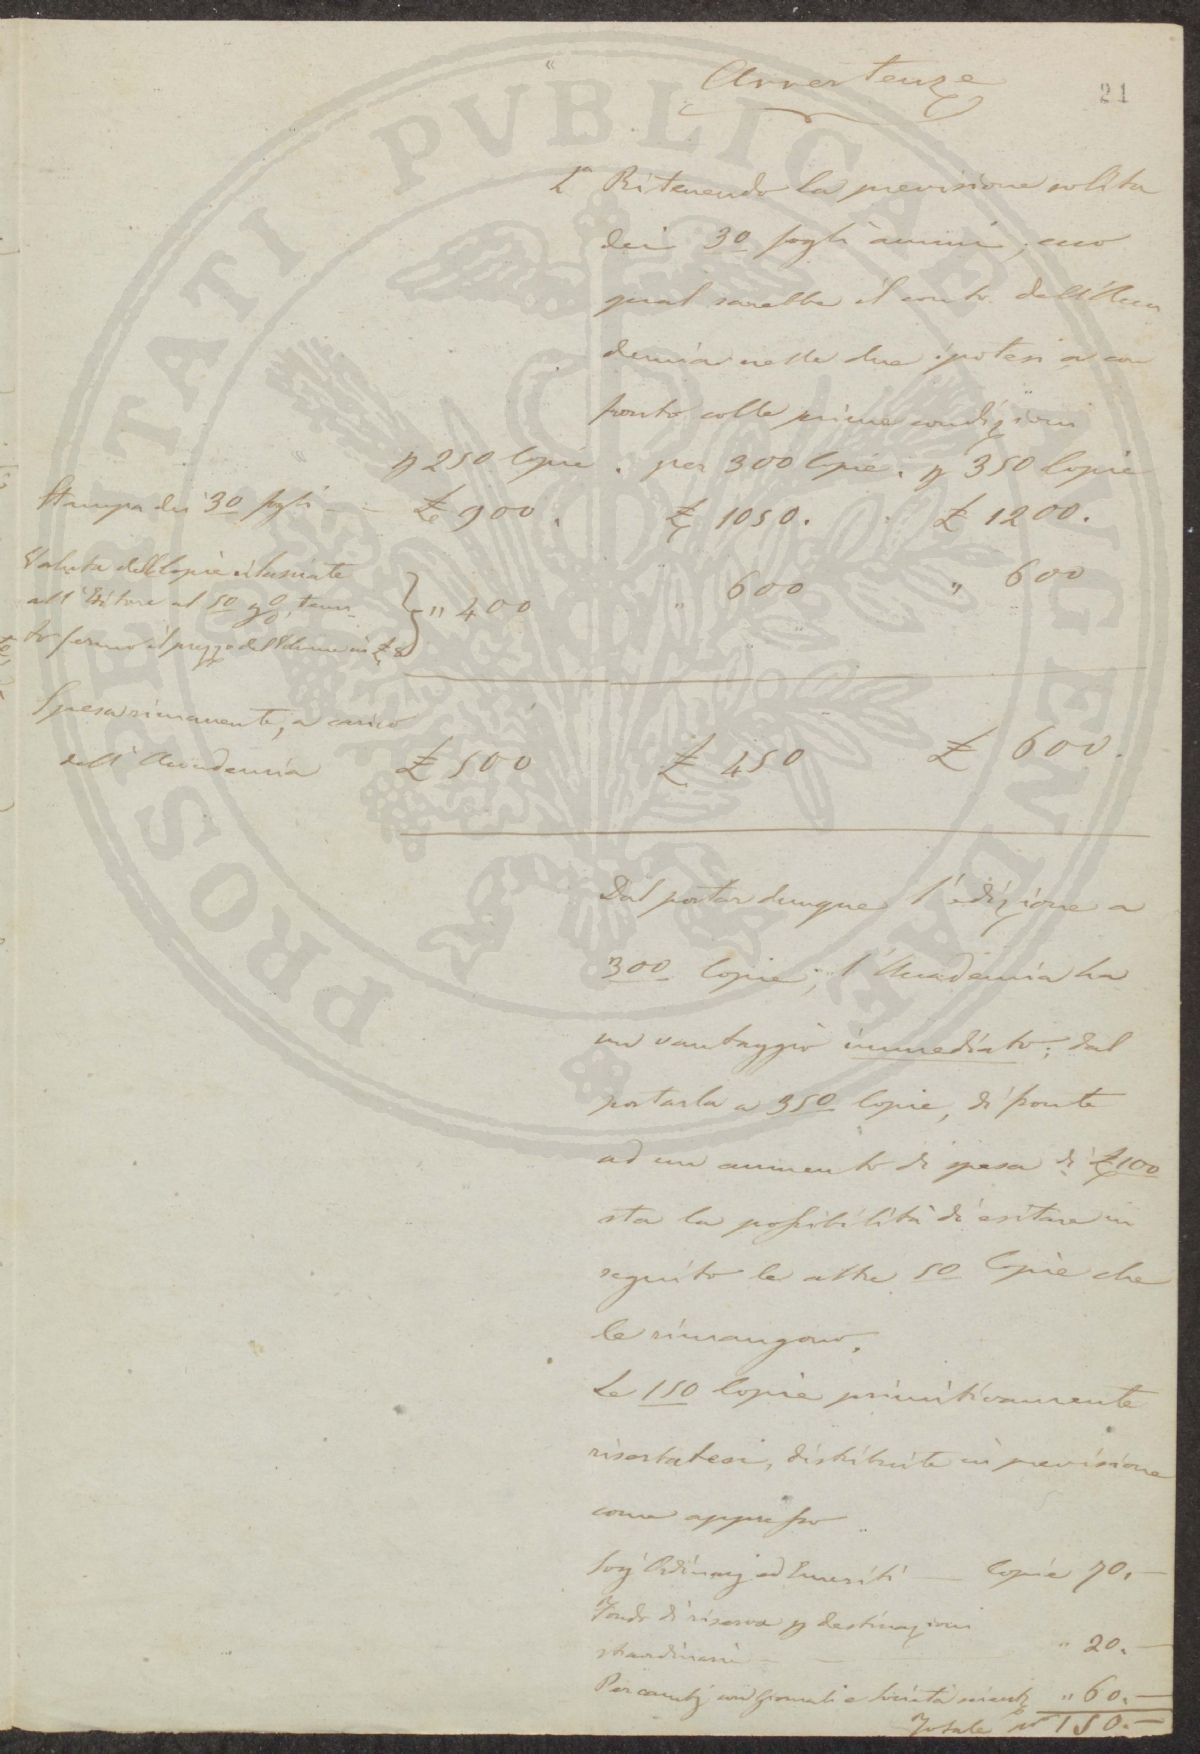 Avvertenze
21
1.ª Ritenendo la previsione solita
dei 30 fogli annui, ecco
qual sarebbe il conto dell'Acca
demia nelle due ipotesi a con
fronto colle prime condizioni
p 250 Copie . per 300 Copie . p 350 Copie
Stampa dei 30 fogli — — £ 900 . £ 1050 . £ 1200 .
Valuta delle Copie rilasciate
all'Editore al 50 %, tenu-
to fermo il prezzo del Volume in £ 8 } " 400 " 600 " 600
Spesa rimanente, a carico
dell'Accademia £ 500 £ 450 £ 600 .
Dal portar dunque l'edizione a
300 Copie, l'Accademia ha
un vantaggio immediato; dal
portarla a 350 Copie, di fronte
ad un aumento di spesa di £ 100
sta la possibilità di esitare in
seguito le altre 50 Copie che
le rimangono.
Le 150 Copie primitivamente
riserbatesi, distribuite in previsione
come appresso
Socj Ordinarj ed Emeriti — Copie 70. —
Fondo di riserva p destinazioni
straordinarie — — " 20. —
Per cambj con Giornali e Società scientif. " 60. —
Totale 150. —
PROSPERITATI PVBLICAE AVGENDAE